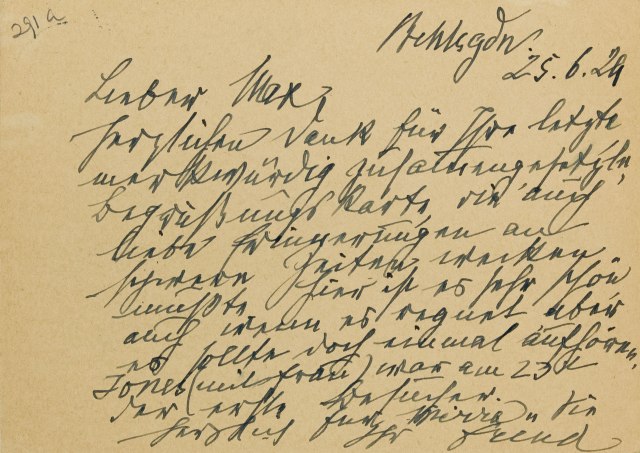 291a
Bchtsgdn.
25.6.29
Lieber Max,
Herzlichen Dank für Ihre letzte
merkwürdig zusammengesetzte
Begrüßungskarte, die auch
liebe Erinnerungen an
schwere Zeiten wecken
mußte. Hier ist es sehr schön
auch wenn es regnet aber
es sollte doch einmal aufhören.
Jones (mit Frau) war am 23t
der erste Besucher.
Herzlich für Mirra u Sie
Ihr Freud